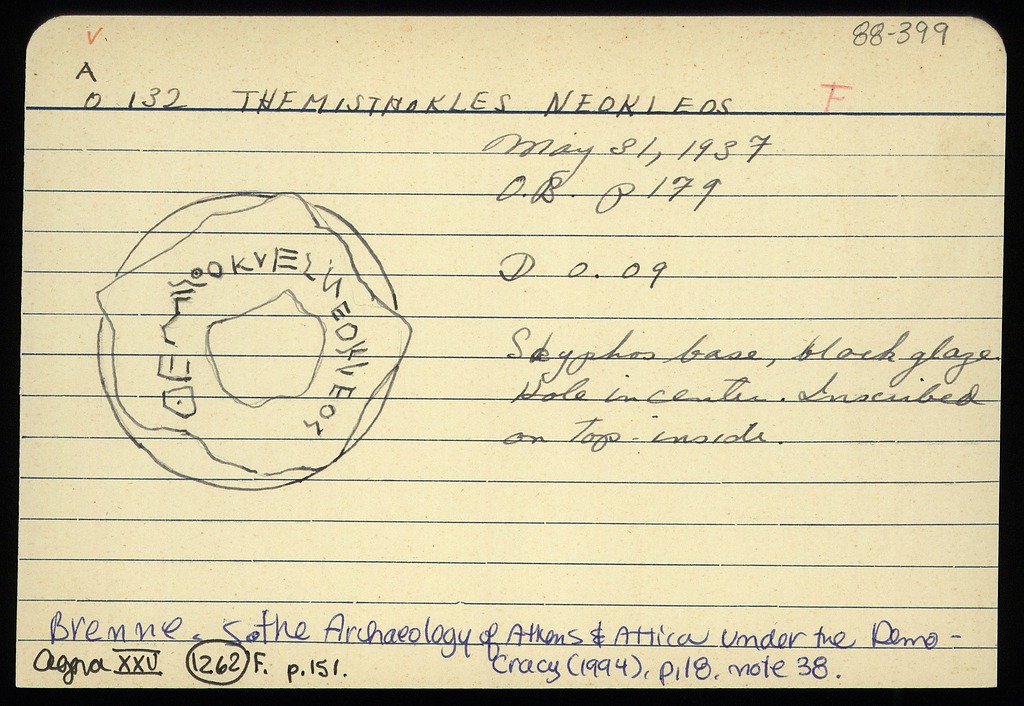 V.
88-399
A
O 132 THEMISTHOKLES NEOKLEOS F
May 31, 1937
O.B. p 179
D 0.09
Skyphos base, black glaze.
Hole in center. Inscribed
on top-inside.
Brenne, S. the Archaeology of Athens & Attica under the Demo-
cracy (1994), p.18, note 38.
Agora XXV 1262 F. p.151.